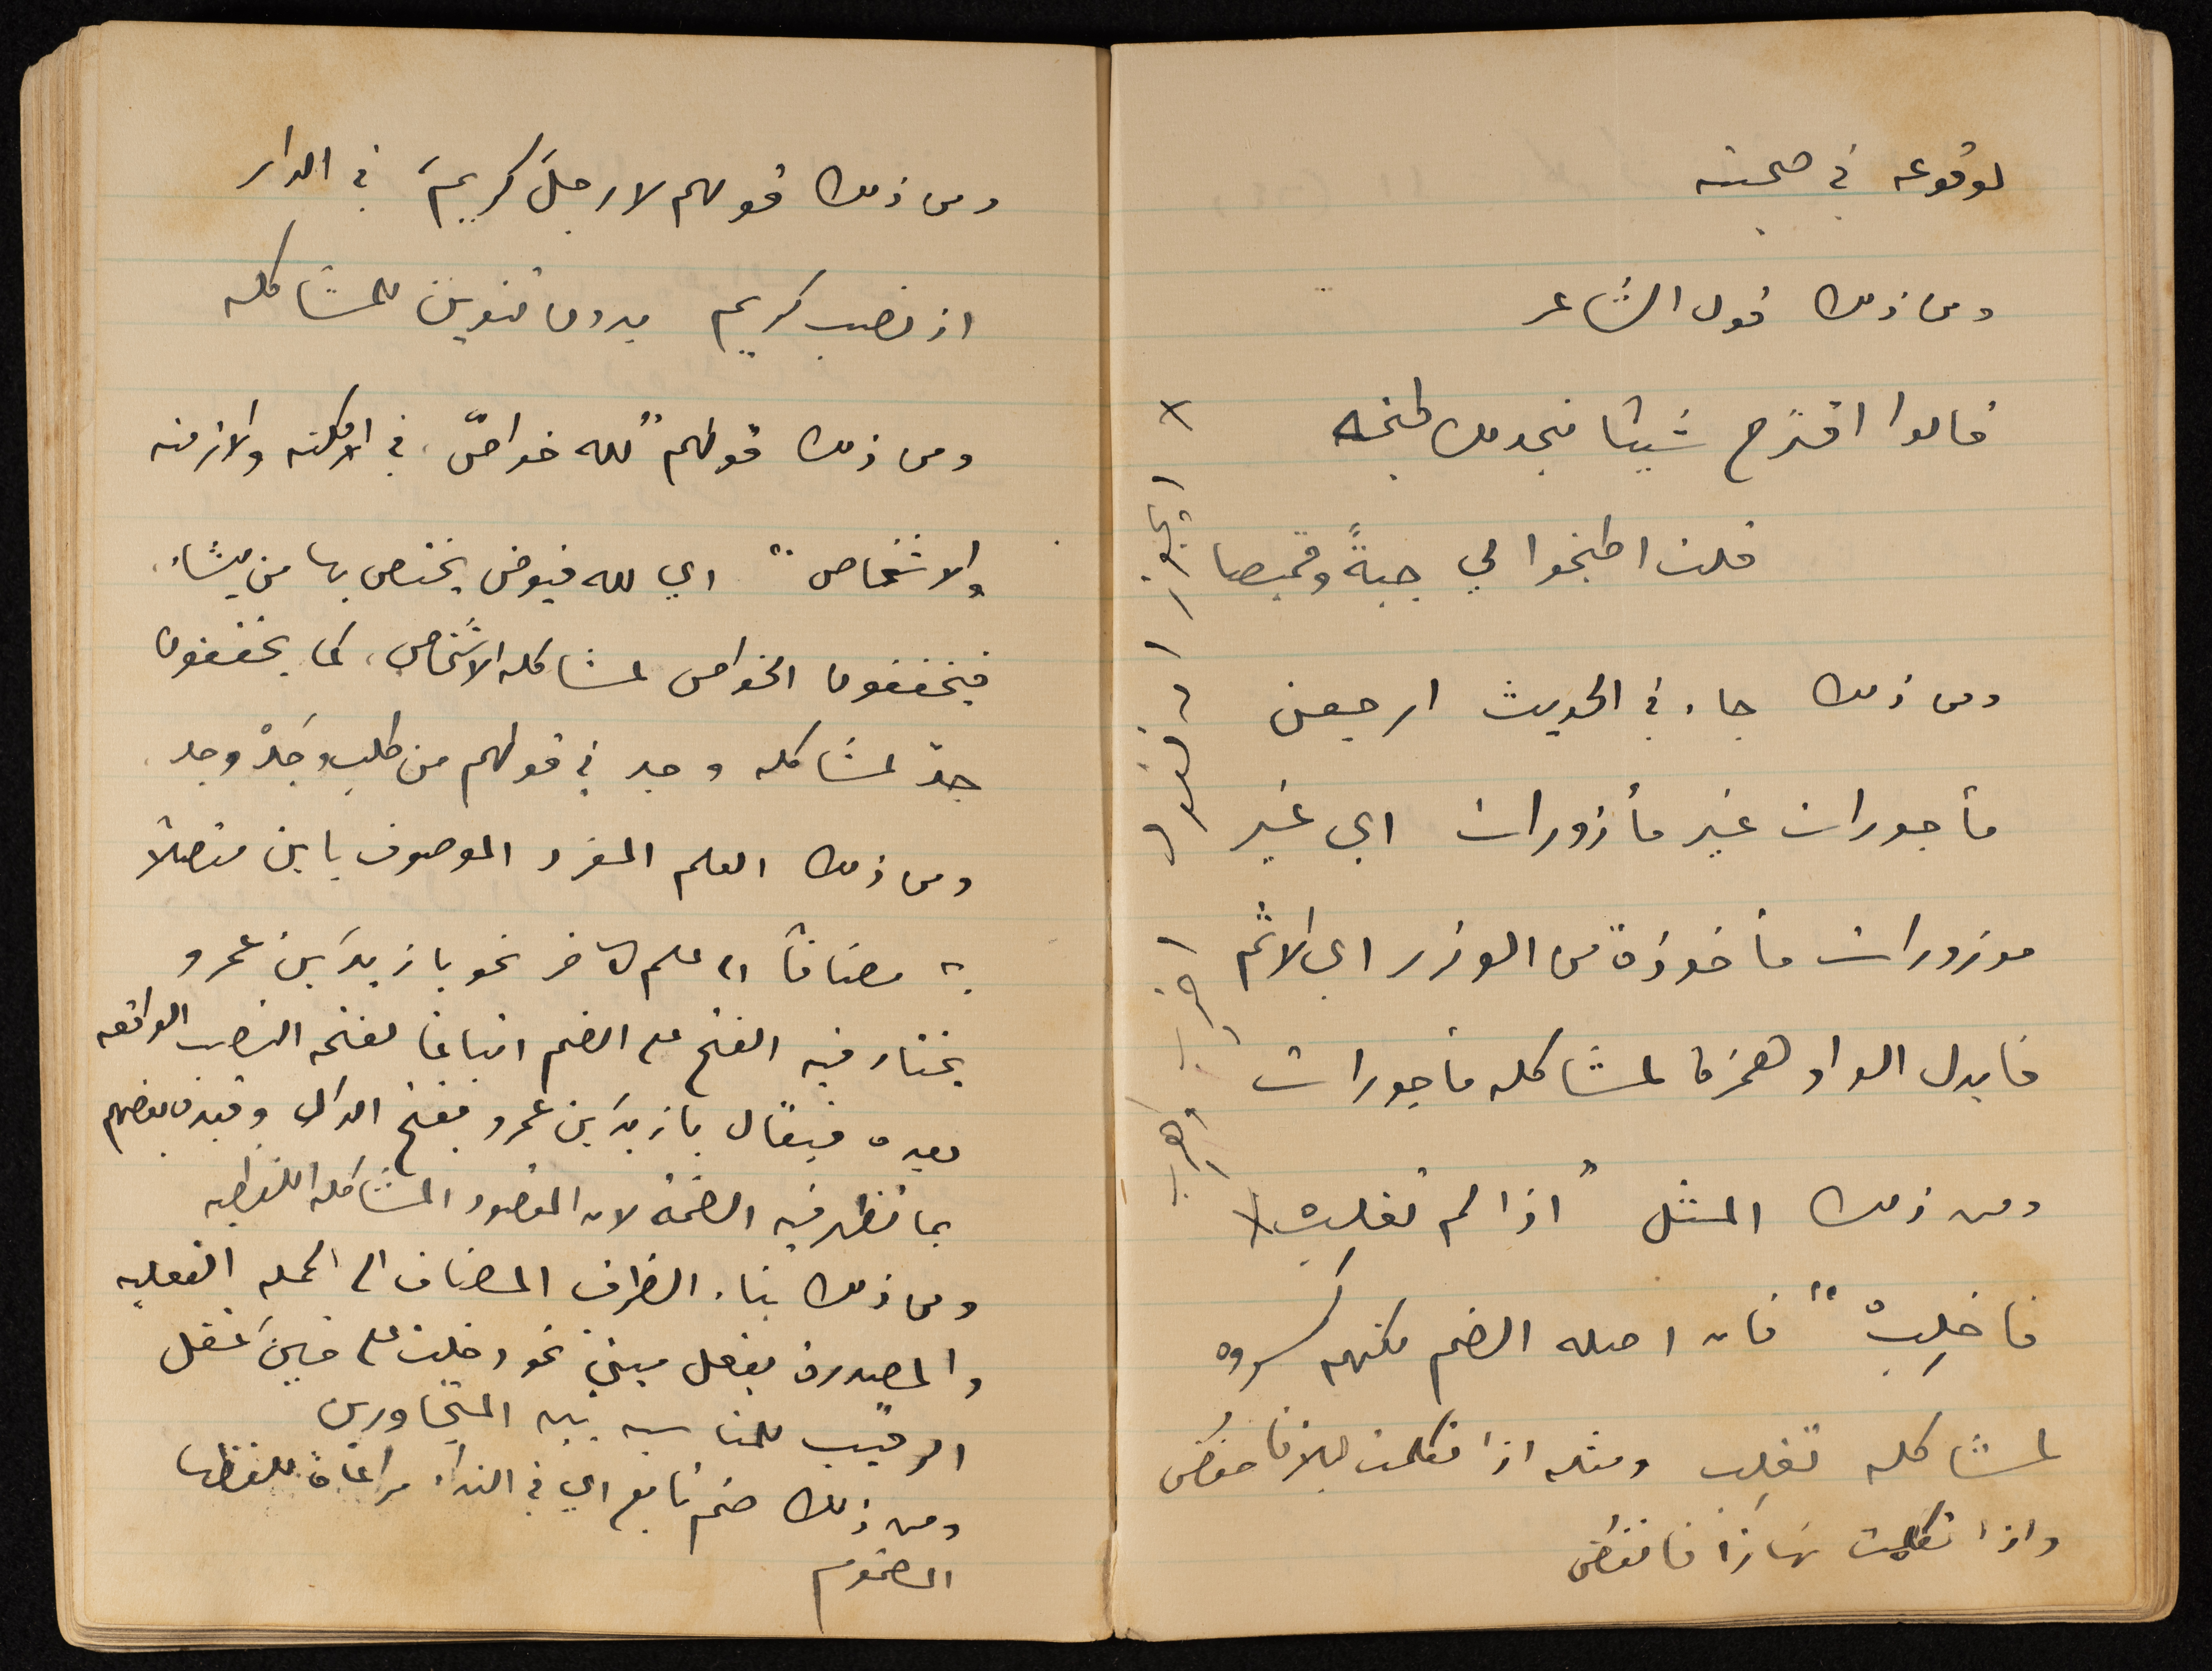 لوقوعه في صحبته
ومن ذلك قول الشاعر
قالوا اقترح شيئا نجد لك طبخه
قلت اطبخوا لي جبةً وقميصا
ومن ذلك جاء في الحديث ارجعن
مأجورات غير مأزورات اي غير
موزورات مأخوذة من الوزر اي الاثم
فابدل الواو همزة لمشاكله مأجورات
ومن ذلك المثل "اذا لم تغلبْ
فاخلِبْ" فان اصله الضم لكنهم كسروه
لمشاكله تغلِب ومثله اذا تكلمت ليلا فاخفض
واذا تكلمت نهارًا فانفض
ومن ذلك قولهم لا رجلَ كريمَ في الدار
اذ نصب كريم بدون تنوين للمشاكله
ومن ذلك قولهم "لله خواصّ في الامكنه والازمنه
والاشخاص" اي لله فيوض يختص بها من يشاء
فيخففون الخواص لمشاكله الاشخاص، كما يخففون
جدّ لمشاكله وجد في قولهم من طلب وَجَدْ وجد
ومن ذلك العلم المفرد الموصوف بابن متصلا
به مضافًا الى علم اخر نحو يا زيدَ بن عمرو
يختار فيه الفتح على الضم اتباعا لفتحه النصب الواقعه
بعده فيقال يا زيدَ بن عمرو بفتح الدال وقيده بعضهم
بما تظهر فيه الضمة لان المقصود المشاكله اللفظيه
ومن ذلك بناء الظرف المضاف الى الجمله الفعليه
والمصدرة بفعل مبني نحو دخلت على حينَ غفل
الرقيب للمناسبه بين المتجاورين
ومن ذلك ضم تابع اي في النداء مراعاة للفظها
المضموم